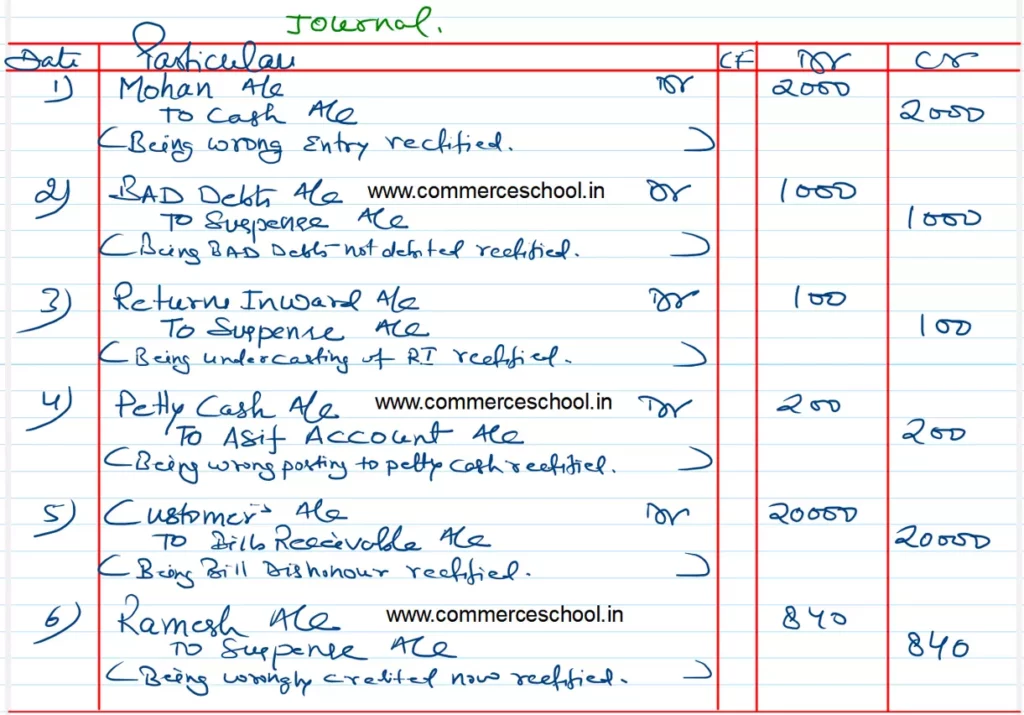 Journal.
Date Particulars CF Dr Cr
1) Mohan A/c Dr 2000
To Cash A/c 2000
(Being wrong Entry rectified. )
2) BAD Debts A/c www.commerceschool.in Dr 1000
To Suspense A/c 1000
(Being BAD Debts not debited rectified. )
3) Returns Inward A/c Dr 100
To Suspense A/c 100
(Being undercasting of RI rectified. )
4) Petty Cash A/c www.commerceschool.in Dr 200
To Asif Account A/c 200
(Being wrong posting to petty cash rectified. )
5) Customer's A/c Dr 20000
To Bills Receivable A/c 20000
(Being Bill Dishonour rectified. )
6) Ramesh A/c www.commerceschool.in 840
To Suspense A/c 840
(Being wrongly credited now rectified. )